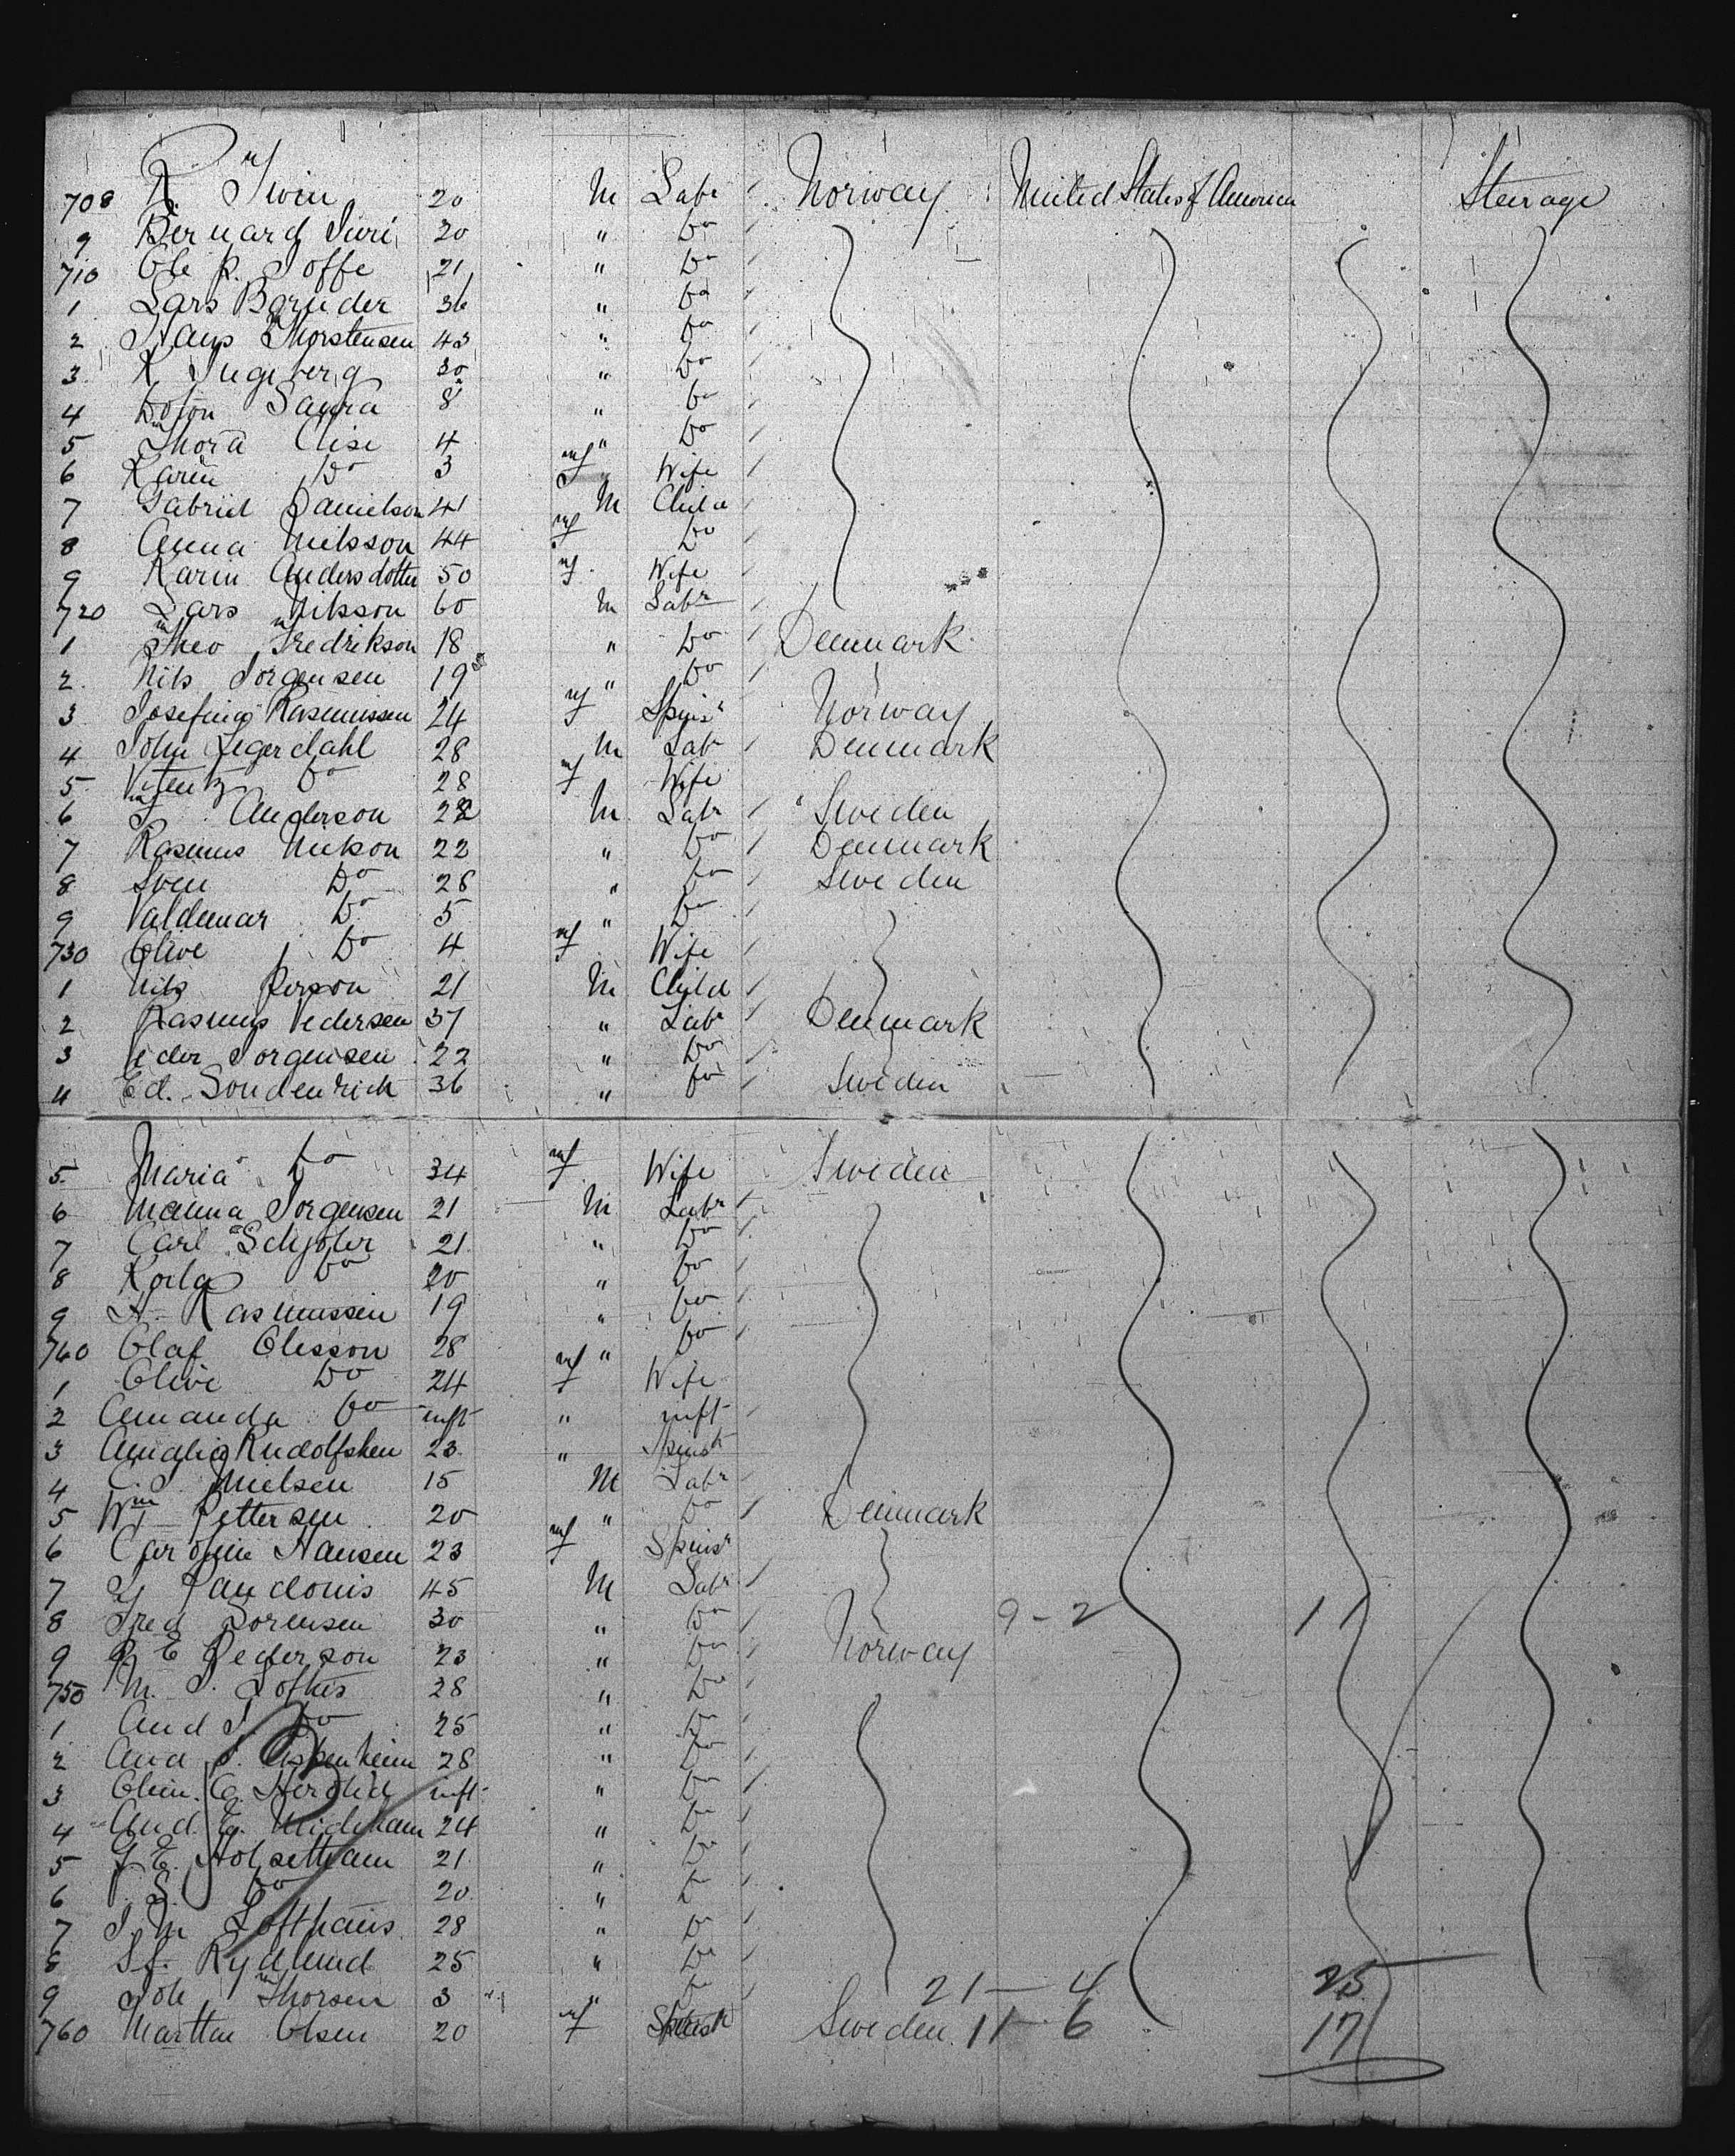 708 K. Twin 20 M Labr Norway United States of America Steerage
9 Bernard Juri 20 " Do
710 Ole P. Toffe 21 " Do
1 Lars Baruder 36 " Do
2 Hans Thorstensen 43 " Do
3 K Ingeberg 30 " Do
4 Laura 8 " Do
5 Thora Elise 4 " Do
6 Karin Do 3 f Wife
7 Gabriel Danielson 41 M Child
8 Anna Nilsson 44 f Do
9 Karin Andersdotter 50 f Wife
720 Lars Nilsson 60 M Labr
1 Theo Fredrikson 18 " Do Denmark
2 Nils Jorgensen 19 " Do
3 Josefina Rasmussen 24 f Spinsr Norway
4 John Segerdahl 28 M Lab Denmark
5 Do 28 f Wife
6 Anderson 22 M Labr Sweden
7 Rasmus Nielson 22 " Do Denmark
8 Sven Do 28 " Do Sweden
9 Valdemar Do 5 " Do
730 Olive Do 4 f Wife
1 Nils Person 21 M Child
2 Rasmus Pedersen 37 " Labr Denmark
3 Peder Jorgensen 22 " Do
4 Ed. Sondenrich 36 " Do Sweden
5 Maria Do 34 f Wife Sweden
6 Manna Jorgensen 21 M Labr
7 Carl Schjoler 21 " Do
8 Do 20 " Do
9 H Rasmussen 19 " Do
740 Olaf Olesson 28 " Do
1 Olive Do 24 f Wife
2 Amanda Do inft " inft
3 Amalia Rudolfshen 23 " Spinst
4 Nielsen 15 M Labr
5 Wm Pettersen 20 " Do Denmark
6 Caroline Hansen 23 f Spinsr
7 45 M Labr
8 Fred Sorensen 30 " Do 9-2 11
9 E Pederson 23 " Do Norway
750 M. Loftus 28 " Do
1 And Do 25 " Do
2 And Espenheim 28 " Do
3 inft " Do
4 And. E. 24 " Do
5 E. 21 " Do
6 S. Do 20 " Do
7 J. M Lofthaus 28 " Do
8 Rydlund 25 " Do
9 Joh Thorsen 3 " Do 21-4 25
760 Martha Olsen 20 f Spinst Sweden 11-6 17